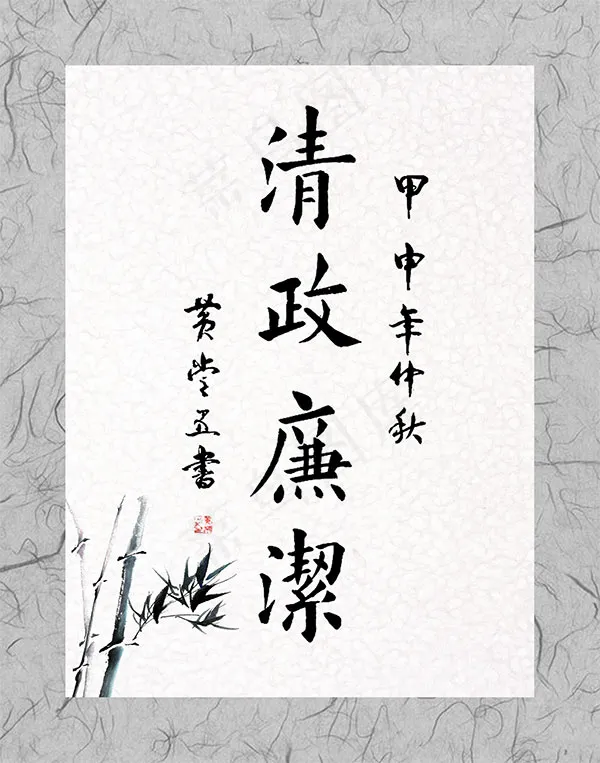 甲申年仲秋
清政廉潔
黄書